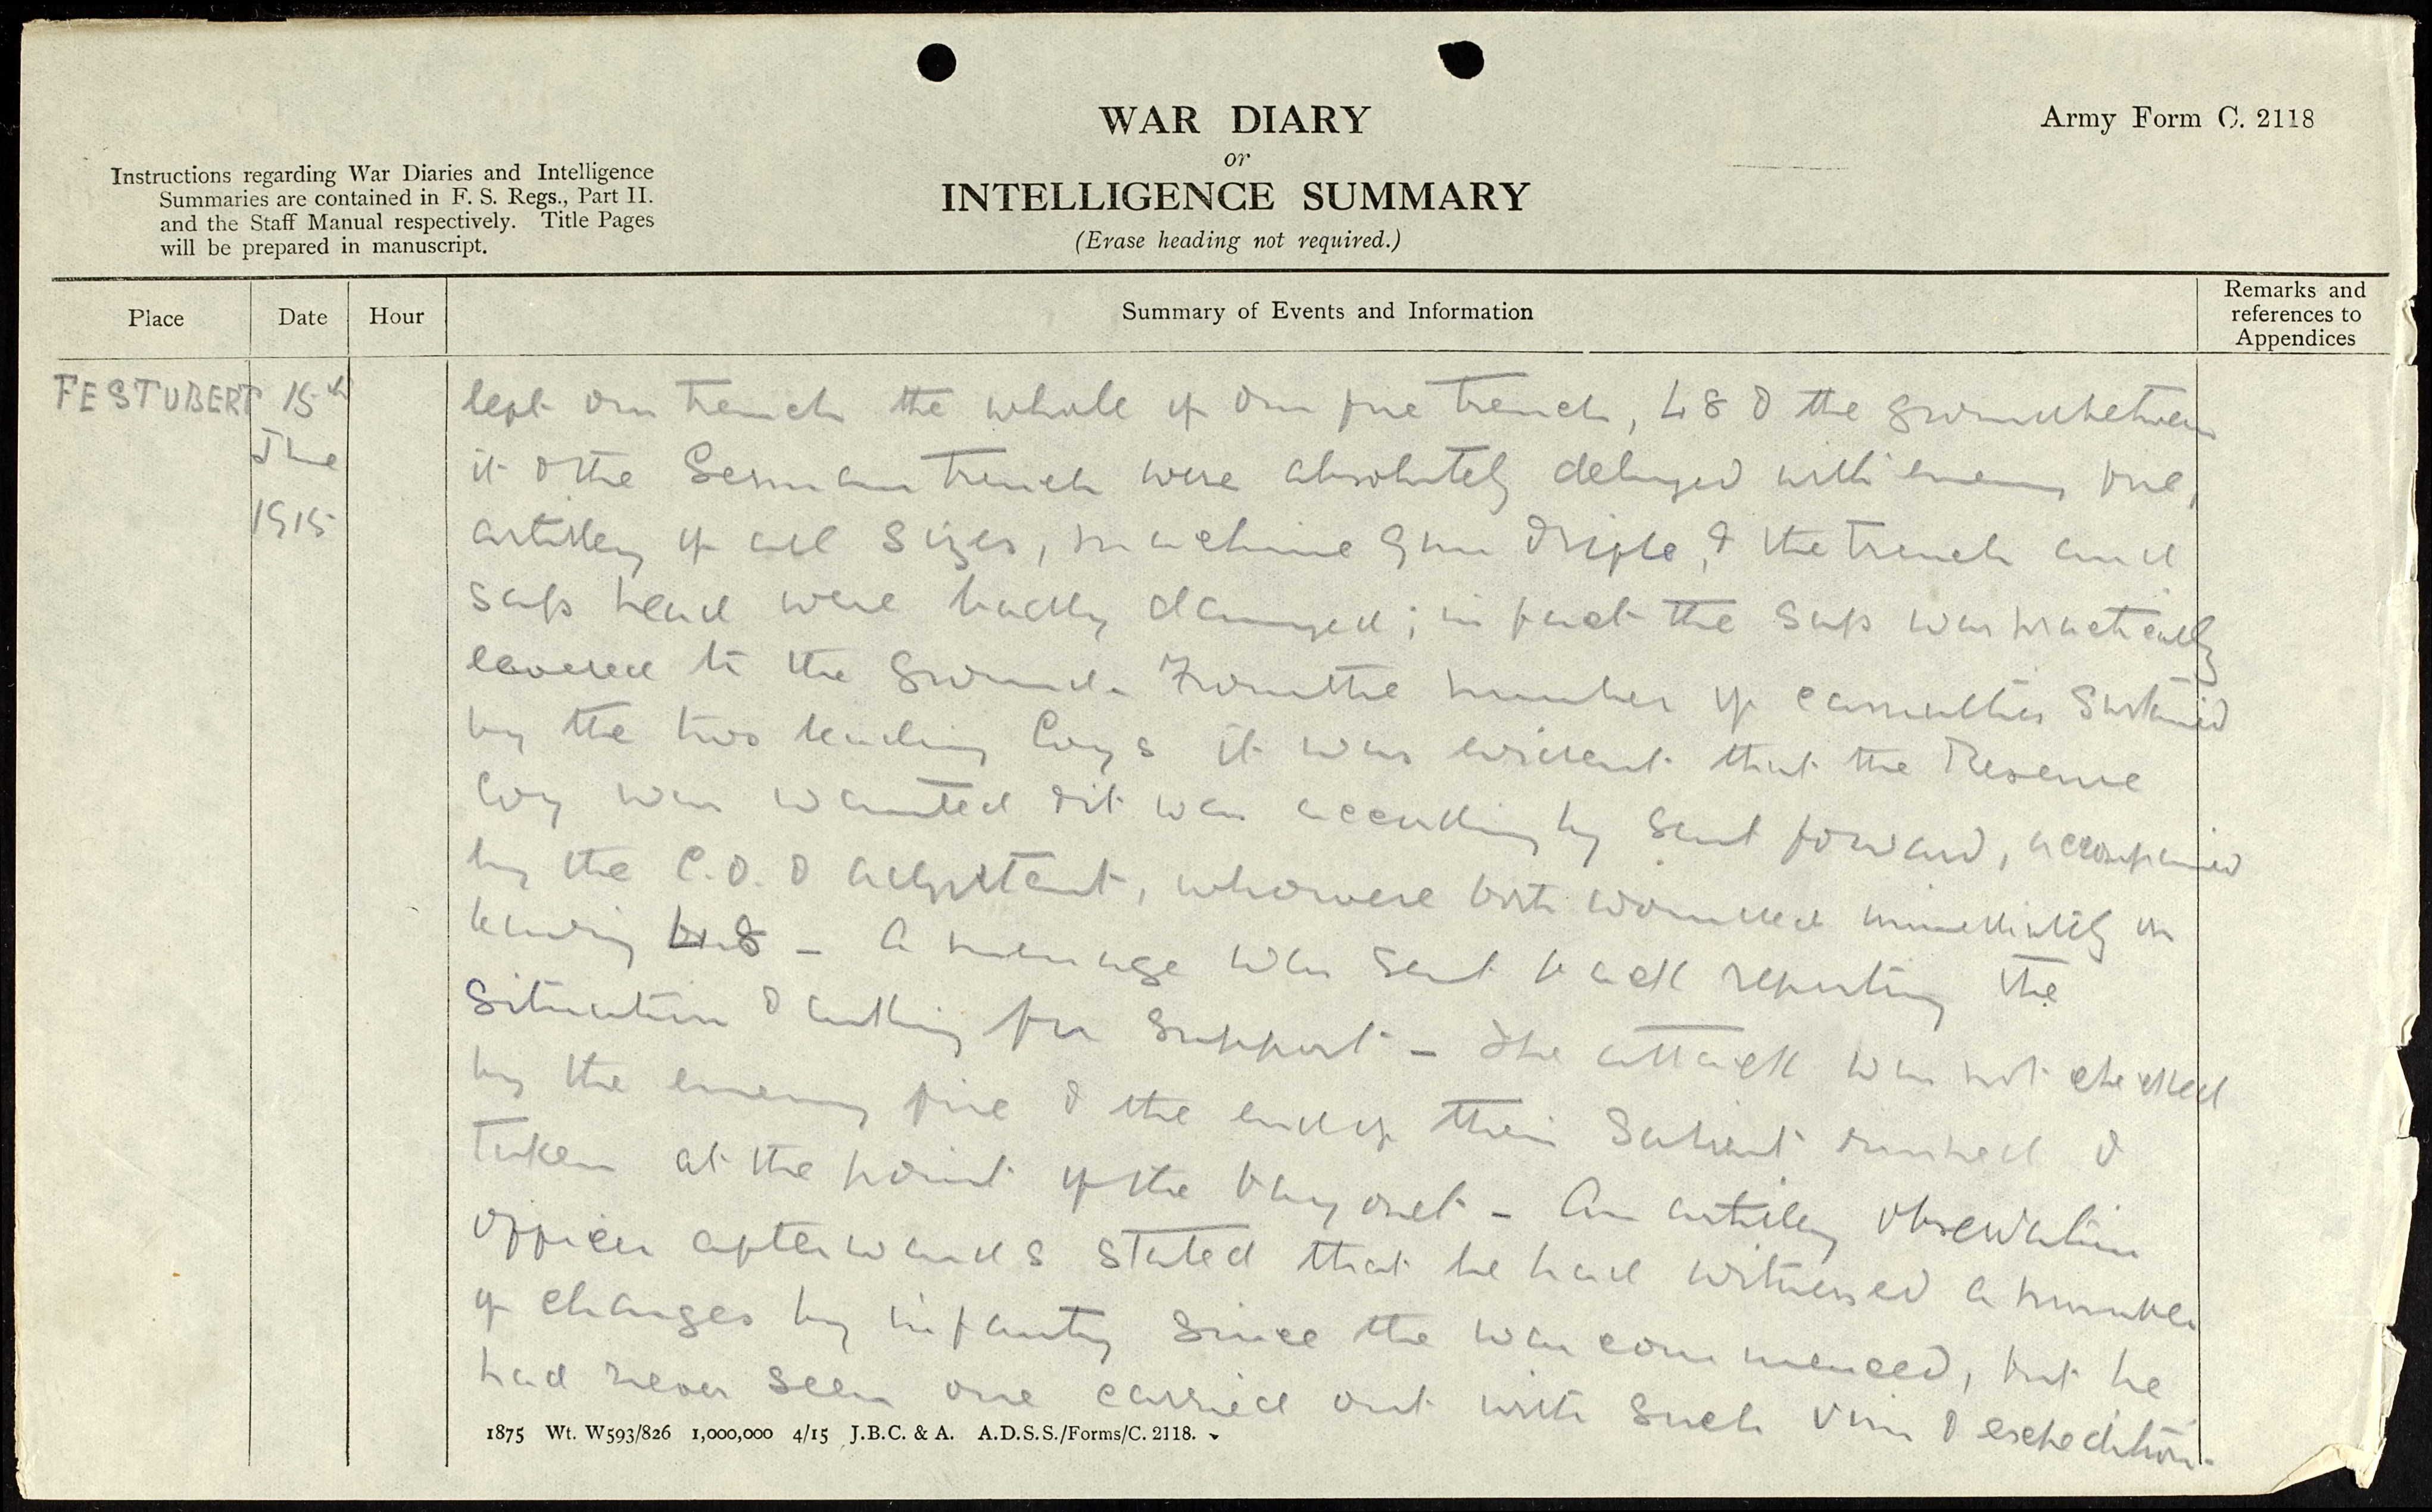 WAR DIARY
or
INTELLIGENCE SUMMARY
(Erase heading not required.)
Army Form C. 2118
Instructions regarding War Diaries and Intelligence
Summaries are contained in F. S. Regs., Part II.
and the Staff Manual respectively. Title Pages
will be prepared in manuscript.
Place
Date
Hour
Summary of Events and Information
Remarks and
references to
Appendices
FESTUBERT 15th
June
1915
left our trench the whole of our fire trench, L8 & the ground between
it & the German trench were absolutely deluged with enemy fire,
artillery of all sizes, machine gun & rifle, & the trench and
sap head were badly damaged; in fact the sap was practically
levelled to the ground. From the number of casualties sustained
by the two leading Coys it was evident that the Reserve
Coy was wanted & it was accordingly sent forward, accompanied
by the C.O. & adjutant, who were both wounded immediately on
leaving L8 - A message was sent back reporting the
situation & asking for support - The attack was not checked
by the enemy fire & the end of their Salient rushed &
taken at the point of the bayonet - An artillery observation
officer afterwards stated that he had witnessed a number
of charges by infantry since the war commenced, but he
had never seen one carried out with such vim & expedition.
1875 Wt. W593/826 1,000,000 4/15 J.B.C. & A. A.D.S.S./Forms/C. 2118.